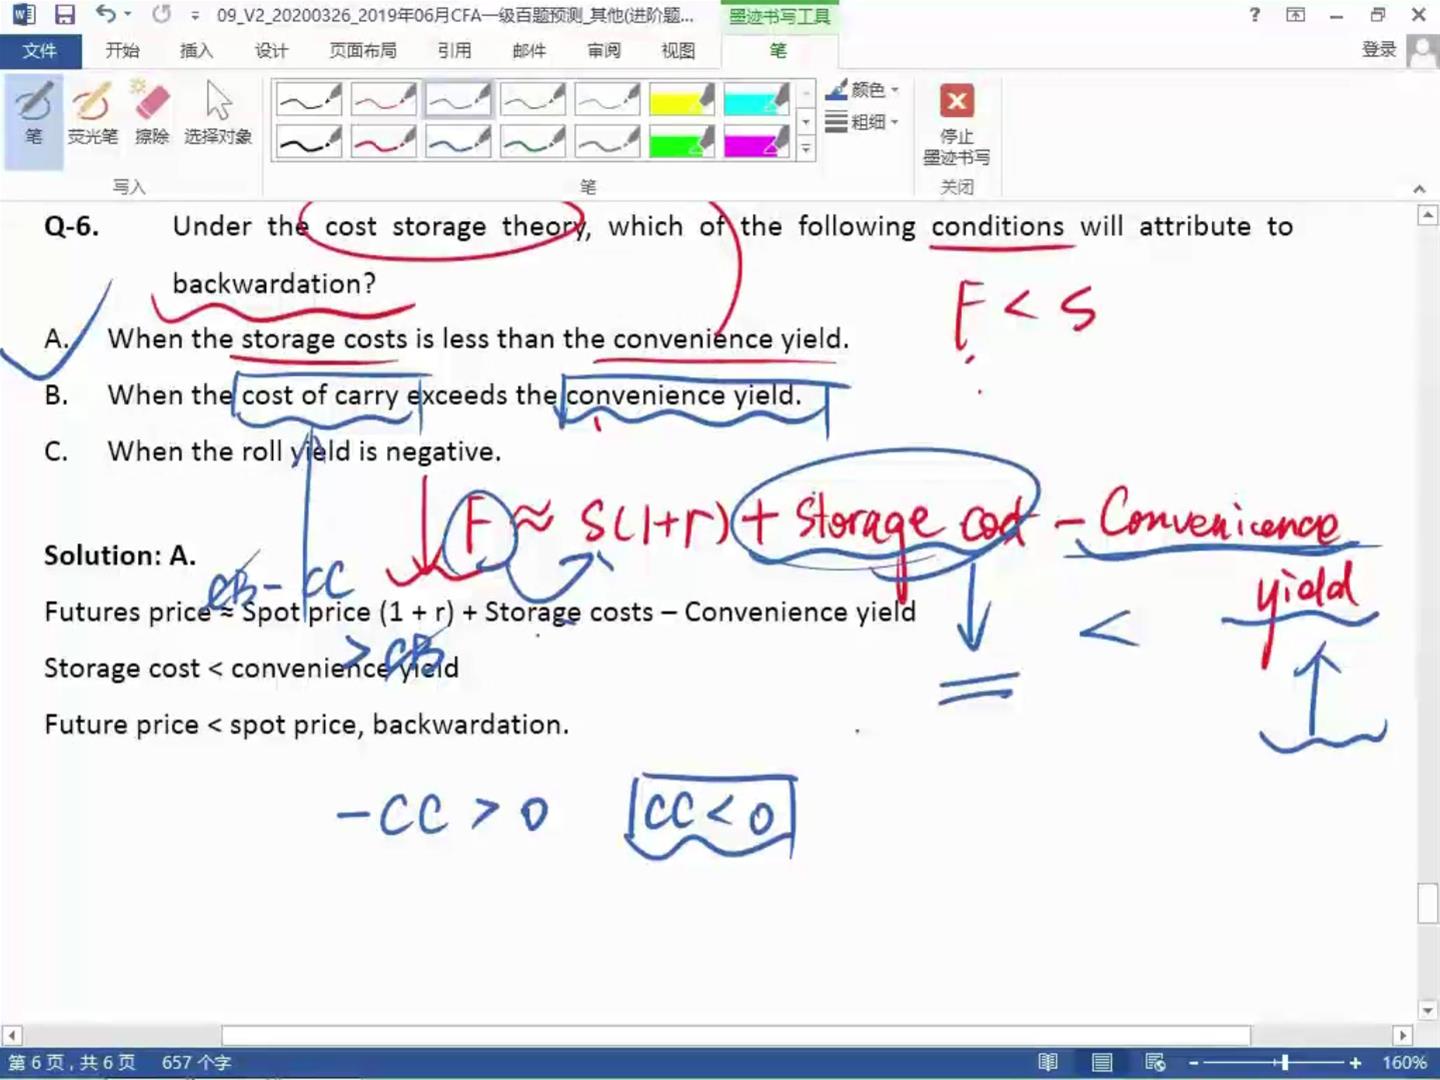 09_V2_20200326_2019年06月CFA一级百题预测_其他(进阶题...
墨迹书写工具
文件 开始 插入 设计 页面布局 引用 邮件 审阅 视图 笔 登录
笔 荧光笔 擦除 选择对象 颜色 粗细 停止 墨迹书写
写入 笔 关闭
Q-6. Under the cost storage theory, which of the following conditions will attribute to
backwardation?
F < S
A. When the storage costs is less than the convenience yield.
B. When the cost of carry exceeds the convenience yield.
C. When the roll yield is negative.
F ≈ S(1+r) + Storage cost - Convenicence
yield
Solution: A.
CB - CC
Futures price ≈ Spot price (1 + r) + Storage costs – Convenience yield
<
> CB
Storage cost < convenience yield
Future price < spot price, backwardation.
-CC > 0 CC < 0
第 6 页，共 6 页 657 个字 160%